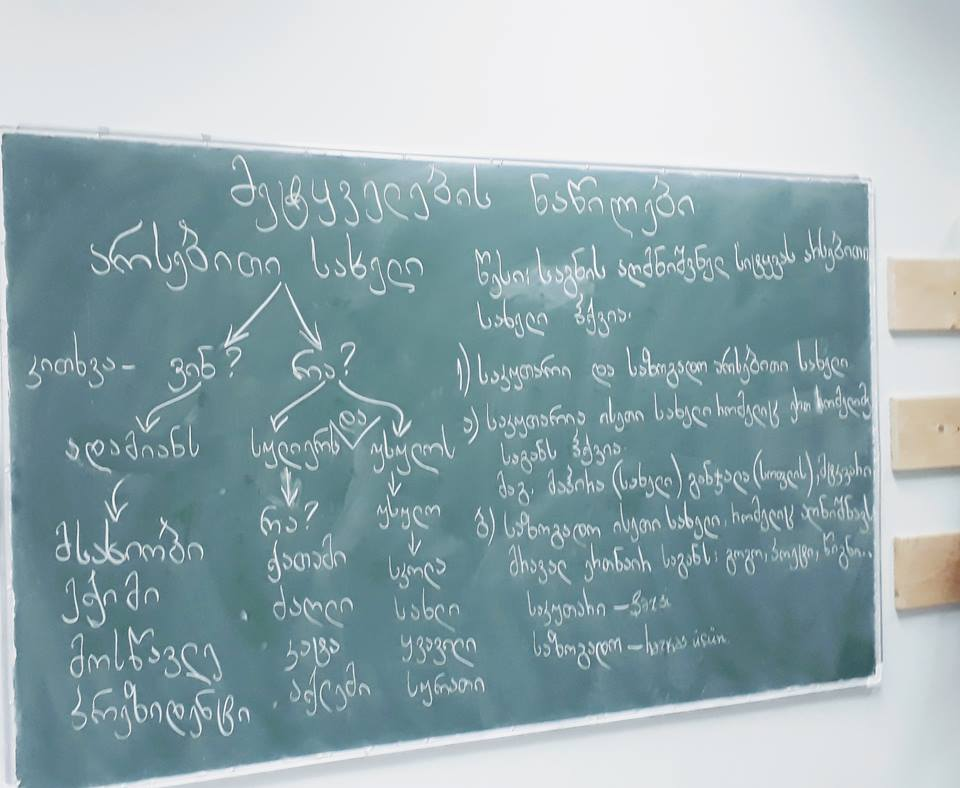 მეტყველების ნაწილები
არსებითი სახელი
კითხვა - ვინ? რა?
ადამიანს სულიერს და უსულოს
მსახიობი
ექიმი
მოსწავლე
პრეზიდენტი
რა?
ქათამი
ძაღლი
კატა
აქლემი
უსულო
სკოლა
სახლი
ყვავილი
სურათი
წესი: საგნის აღმნიშვნელ სიტყვას არსებითი
სახელი ჰქვია.
1) საკუთარი და საზოგადო არსებითი სახელი
ა) საკუთარია ისეთი სახელი რომელიც ერთ რომელიმე
საგანს ჰქვია.
მაგ. (სახელი) განჯალა (სოფლის), მტკვარი
ბ) საზოგადო ისეთი სახელი, რომელიც აღნიშნავს
მრავალ ერთნაირ საგანს: გოგო, პოეტი, წიგნი..
საკუთარი -
საზოგადო - üçün